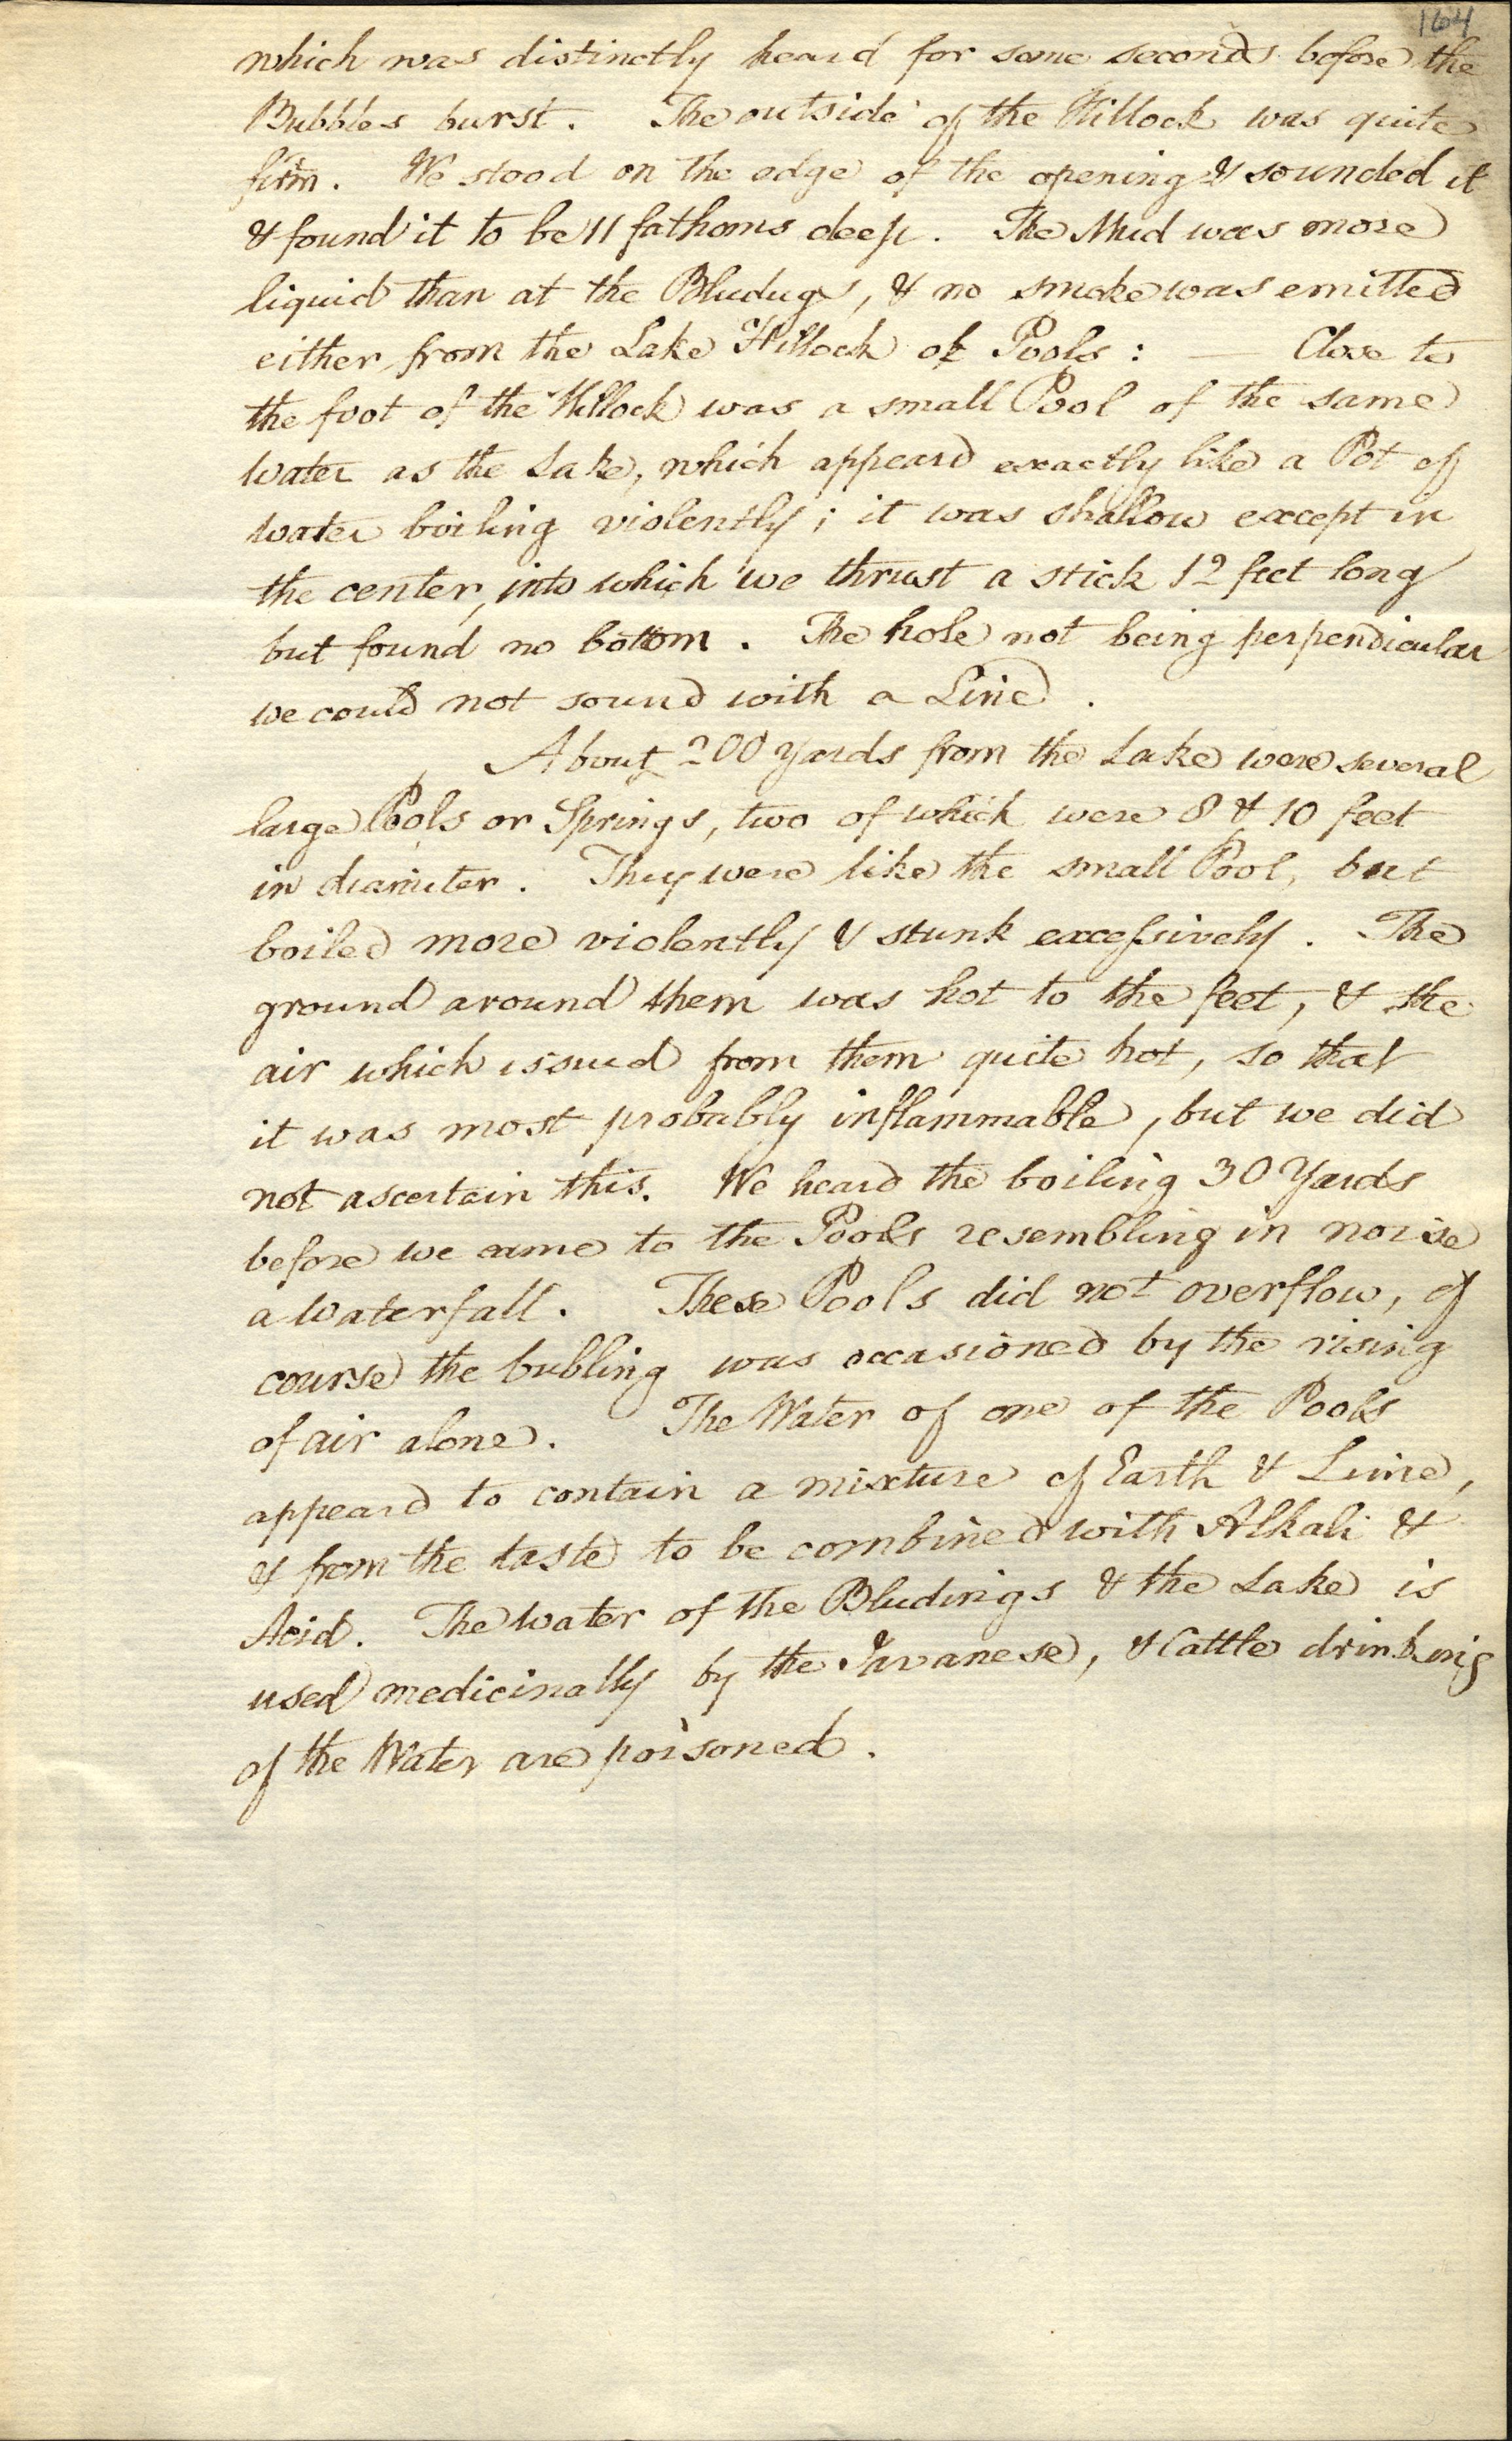 164
which was distinctly heard for some seconds before the
Bubbles burst. The outside of the Hillock was quite
firm. We stood on the edge of the opening & sounded it
& found it to be 11 fathoms deep. The Mud was more
liquid than at the Bludugs, & no smoke was emitted
either from the Lake Hillock or Pools: Close to
the foot of the Hillock was a small Pool of the same
water as the Lake, which appeard exactly like a Pot of
water boiling violently; it was shallow except in
the center, into which we thrust a stick 12 feet long
but found no bottom. The hole not being perpendicular
we could not sound with a Line.
About 200 Yards from the Lake were several
large Pools or Springs, two of which were 8 & 10 feet
in diameter. They were like the small Pool, but
boiled more violently & stunk excessively. The
ground around them was hot to the feet, & the
air which issued from them quite hot, so that
it was most probably inflammable, but we did
not ascertain this. We heard the boiling 30 Yards
before we came to the Pools resembling in noise
a waterfall. These Pools did not overflow, of
course the bubling was occasioned by the rising
of air alone. The Water of one of the Pools
appeard to contain a mixture of Earth & Lime,
& from the taste to be combined with Alkali &
Acid. The water of the Bludings & the Lake is
used medicinally by the Javanese, & Cattle drinking
of the Water are poisoned.